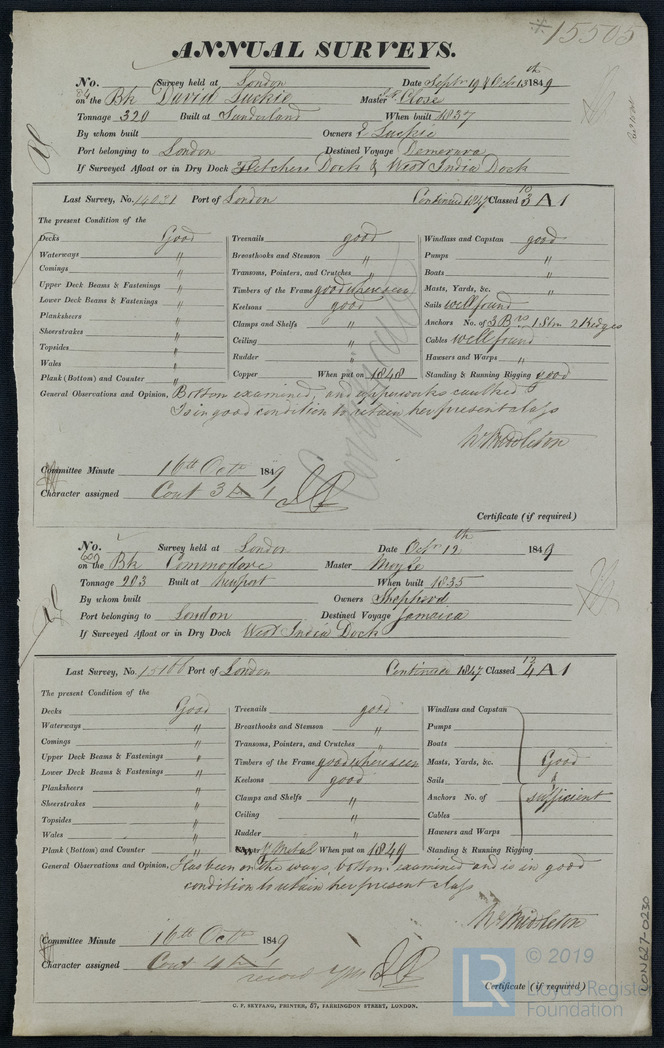 15503
ANNUAL SURVEYS.
No. Survey held at London Date Septr 19 & Octr 13th 1849
on the Bk David Luckie Master Close
Tonnage 320 Built at Sunderland When built 1837
By whom built Owners Luckie
Port belonging to London Destined Voyage Demerara
If Surveyed Afloat or in Dry Dock Fletchers Dock & West India Dock
Last Survey, No. 14031 Port of London Continued 1847 Classed 10/3 A 1
The present Condition of the
Decks Good
Waterways "
Comings "
Upper Deck Beams & Fastenings "
Lower Deck Beams & Fastenings "
Planksheers "
Sheerstrakes "
Topsides "
Wales "
Plank (Bottom) and Counter "
Treenails good
Breasthooks and Stemson "
Transoms, Pointers, and Crutches "
Timbers of the Frame good where seen
Keelsons good
Clamps and Shelfs "
Ceiling "
Rudder "
Copper When put on 1848
Windlass and Capstan good
Pumps "
Boats "
Masts, Yards, &c. "
Sails well found
Anchors No. of 3 Brs 1 Strm 2 Kedges
Cables well found
Hawsers and Warps "
Standing & Running Rigging good
General Observations and Opinion, Bottom examined, and upperworks caulked &
Is in good condition to retain her present class
Wm Middleton
Committee Minute 16th Octr 1849
Character assigned Cont 3 A 1
Certificate (if required)
No. Survey held at London Date Octr 12th 1849
on the Bk Commodore Master Moyle
Tonnage 203 Built at Newport When built 1835
By whom built Owners Sheppard
Port belonging to London Destined Voyage Jamaica
If Surveyed Afloat or in Dry Dock West India Dock
Last Survey, No. 15166 Port of London Continued 1847 Classed 12/4 A 1
The present Condition of the
Decks Good
Waterways "
Comings "
Upper Deck Beams & Fastenings "
Lower Deck Beams & Fastenings "
Planksheers "
Sheerstrakes "
Topsides "
Wales "
Plank (Bottom) and Counter "
Treenails good
Breasthooks and Stemson "
Transoms, Pointers, and Crutches "
Timbers of the Frame good where seen
Keelsons good
Clamps and Shelfs "
Ceiling "
Rudder "
Y Metal When put on 1849
Windlass and Capstan
Pumps
Boats
Masts, Yards, &c. Good
Sails &
Anchors No. of sufficient
Cables
Hawsers and Warps
Standing & Running Rigging
General Observations and Opinion, Has been on the ways, bottom examined and is in good
condition to retain her present class
Wm Middleton
Committee Minute 16th Octr 1849
Character assigned Cont 4 A 1
Certificate (if required)
G. F. SEYFANG, PRINTER, 57, FARRINGDON STREET, LONDON.
LON627-0230
LR
© 2019
Lloyd's Register
Foundation